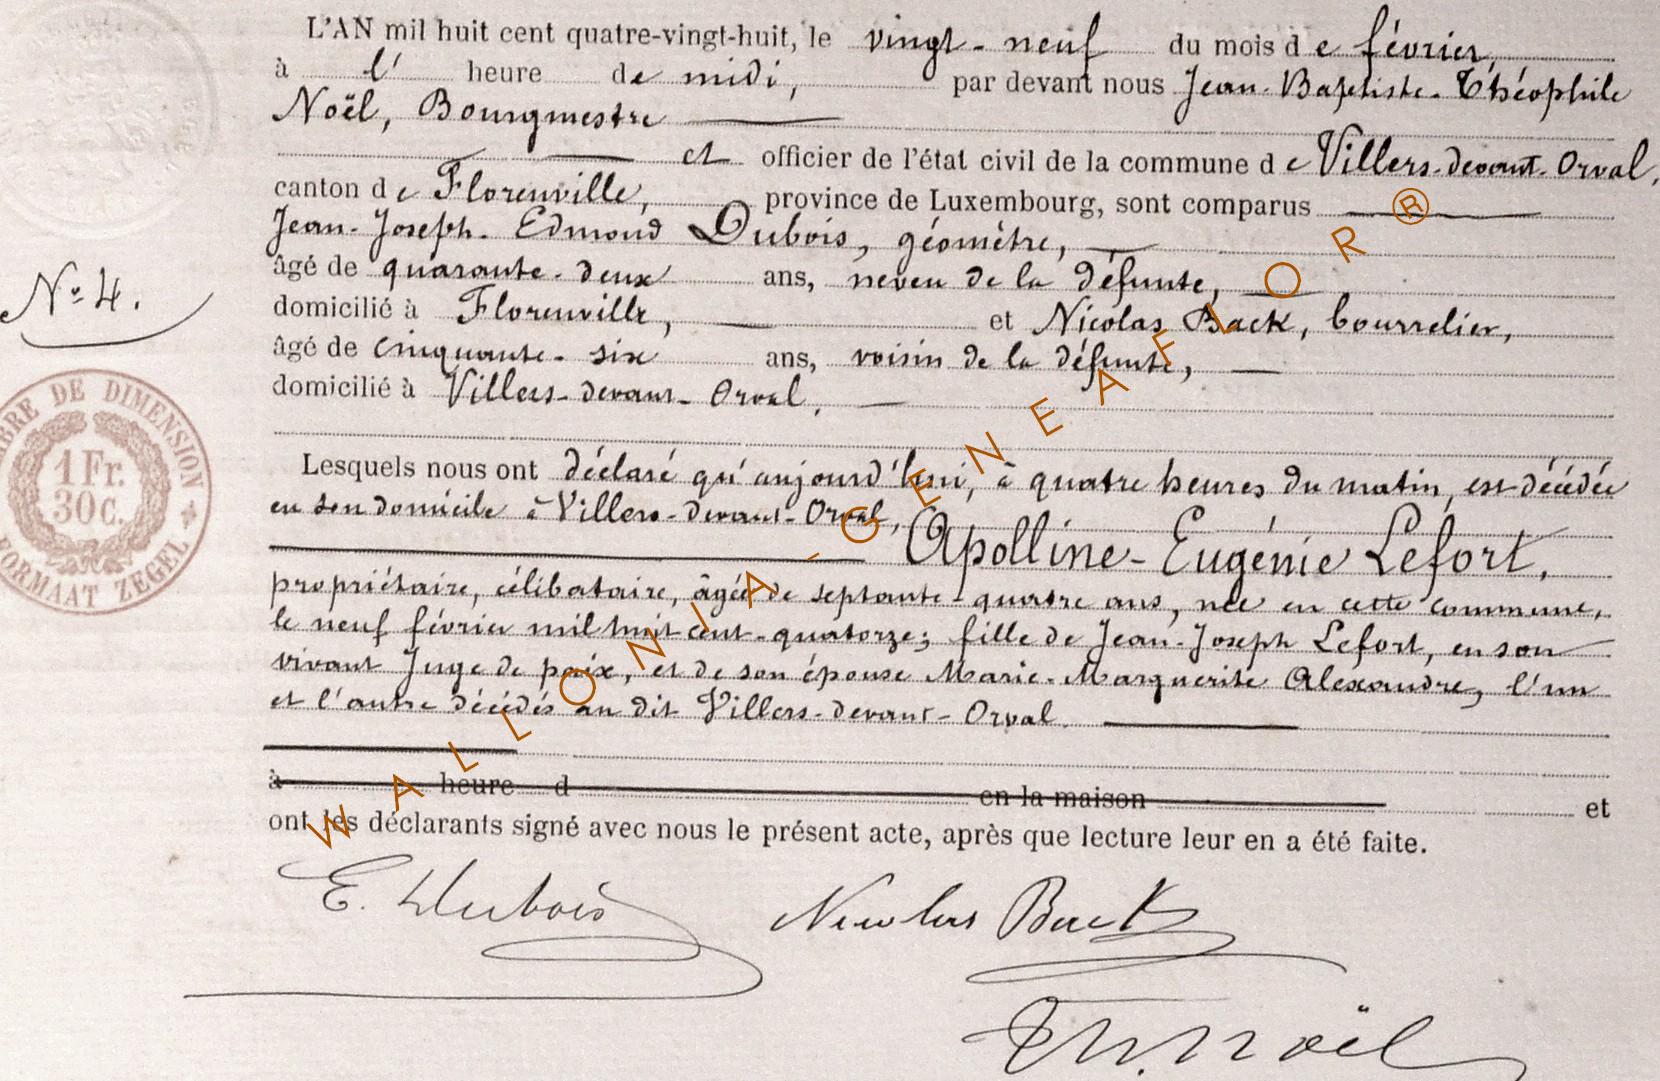 L'AN mil huit cent quatre-vingt-huit, le vingt-neuf du mois de février,
à l' heure de midi, par devant nous Jean-Baptiste-Théophile
Noël, Bourgmestre
et officier de l'état civil de la commune de Villers-devant-Orval,
canton de Florenville, province de Luxembourg, sont comparus
Jean-Joseph-Edmond Dubois, géomètre,
âgé de quarante-deux ans, neveu de la défunte,
N° 4.
domicilié à Florenville, et Nicolas Back, bourrelier,
âgé de cinquante-six ans, voisin de la défunte,
domicilié à Villers-devant-Orval,
Lesquels nous ont déclaré qu'aujourd'hui, à quatre heures du matin, est décédée
en son domicile à Villers-devant-Orval, Apolline-Eugénie Lefort,
propriétaire, célibataire, âgée de septante-quatre ans, née en cette commune,
le neuf février mil huit cent-quatorze; fille de Jean-Joseph Lefort, en son
vivant Juge de paix, et de son épouse Marie-Marguerite Alexandre, l'un
et l'autre décédés au dit Villers-devant-Orval.
à heure d en la maison et
ont les déclarants signé avec nous le présent acte, après que lecture leur en a été faite.
E. Dubois Nicolas Back
Th. Noël
BRE DE DIMENSION
1 Fr.
30 C.
FORMAAT ZEGEL
WALLONIA-GENEAFLOR®